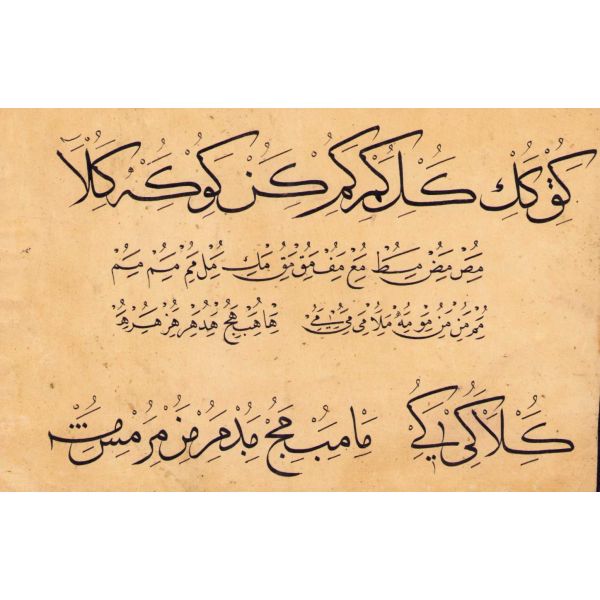 كق كك كل كم كم كن كو كه كلا
مص مض مسط مع مف مق مق مك مل مم مم مم
مم من من مو مه ملا مى مى مے ها هب هج هد هر هز هر هد
كلا كى كے ما مب مج مد مر من مر مس مث